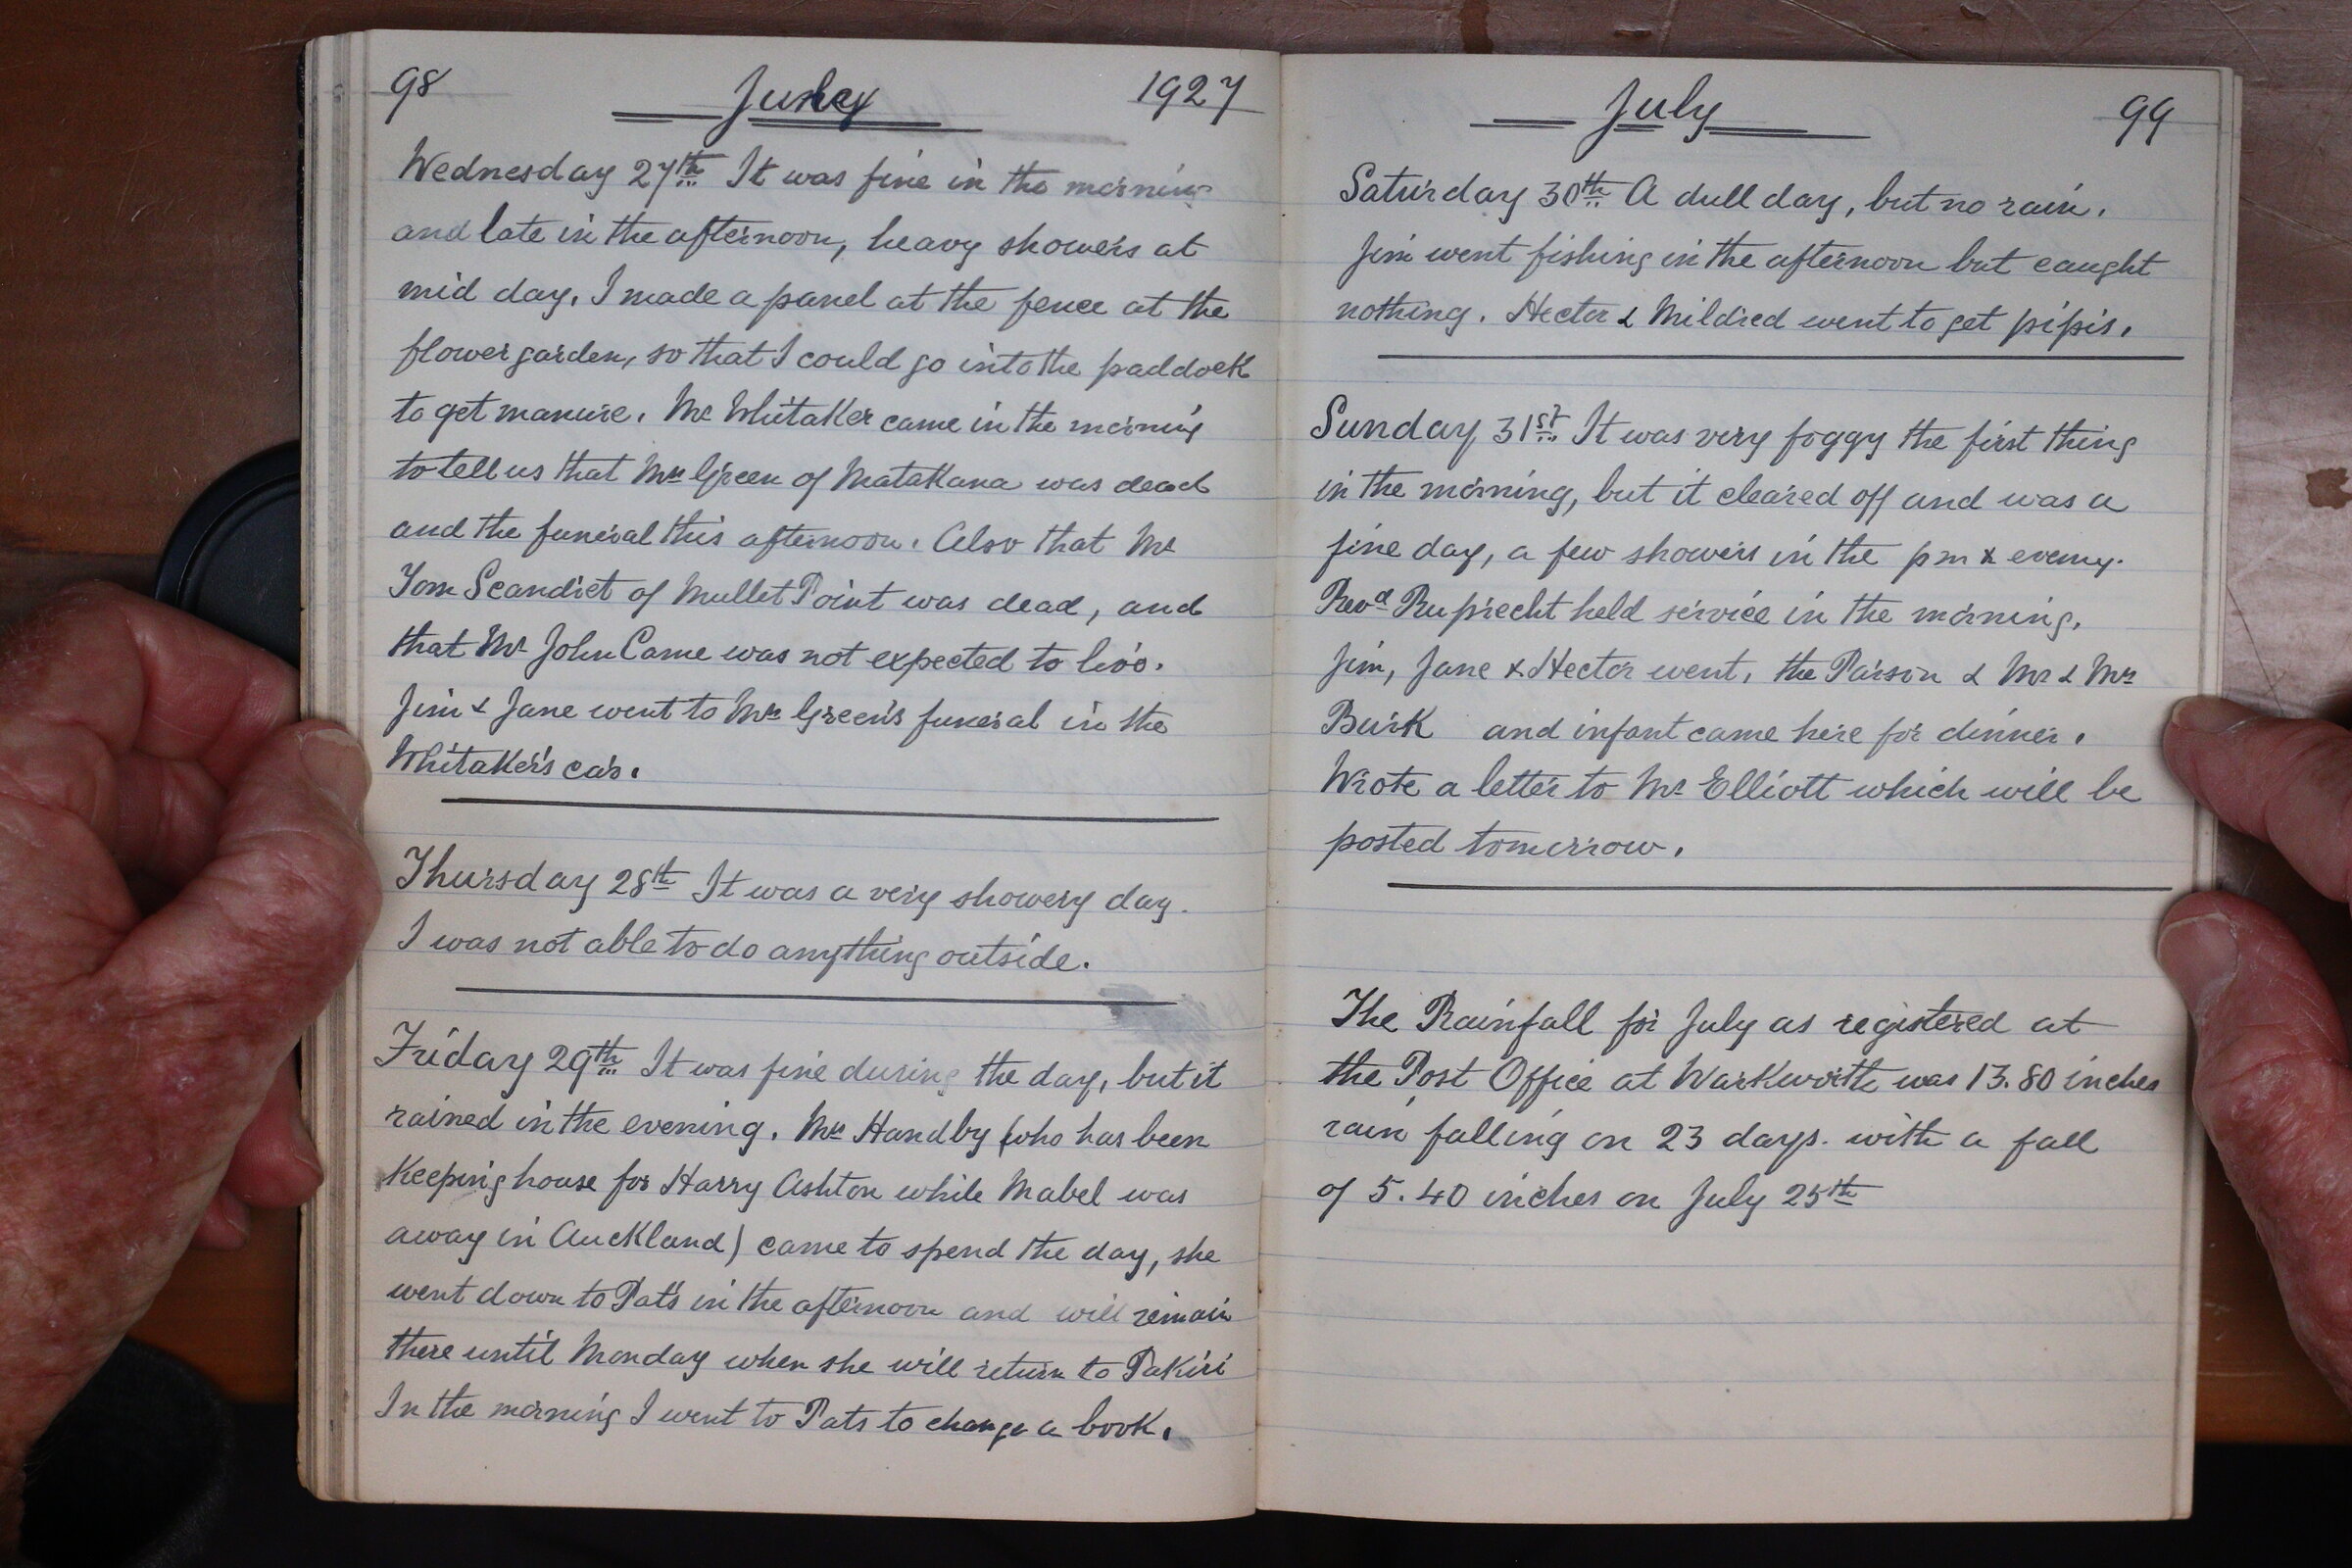 98 July 1927
Wednesday 27th It was fine in the morning
and late in the afternoon, heavy showers at
mid day. I made a panel at the fence at the
flower garden, so that I could go into the paddock
to get manure. Mr Whitaker came in the morning
to tell us that Mrs Green of Matakana was dead
and the funeral this afternoon. Also that Mr
Tom Scandlet of Mullet Point was dead, and
that Mr John Came was not expected to live.
Jim & Jane went to Mrs Green's funeral in the
Whitaker's car.
Thursday 28th It was a very showery day.
I was not able to do anything outside.
Friday 29th It was fine during the day, but it
rained in the evening. Mrs Handby (who has been
Keeping house for Harry Ashton while Mabel was
away in Auckland) came to spend the day, she
went down to Pat's in the afternoon and will remain
there until Monday when she will return to Pakiri
In the morning I went to Pats to change a book.
July 99
Saturday 30th A dull day, but no rain.
Jim went fishing in the afternoon but caught
nothing. Hector & Mildred went to get pipis.
Sunday 31st It was very foggy the first thing
in the morning, but it cleared off and was a
fine day, a few showers in the pm & eveng.
Revd Ruprecht held service in the morning.
Jim, Jane & Hector went, the Parson & Mr & Mrs
Burk and infant came here for dinner.
Wrote a letter to Mr Elliott which will be
posted tomorrow.
The Rainfall for July as registered at
the Post Office at Warkworth was 13.80 inches
rain falling on 23 days. with a fall
of 5.40 inches on July 25th